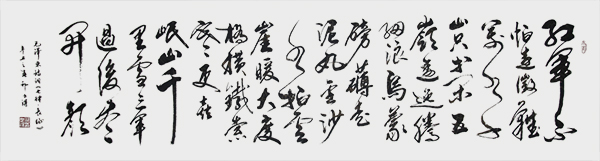 紅軍不
怕遠征難
萬水千
山只等閑五
嶺逶迤騰
細浪烏蒙
磅礴走
泥丸金沙
水拍雲
崖暖大度
橋橫鐵索
寒更喜
岷山千
里雪三軍
過後盡
開顏
毛澤東詩詞《七律長征》